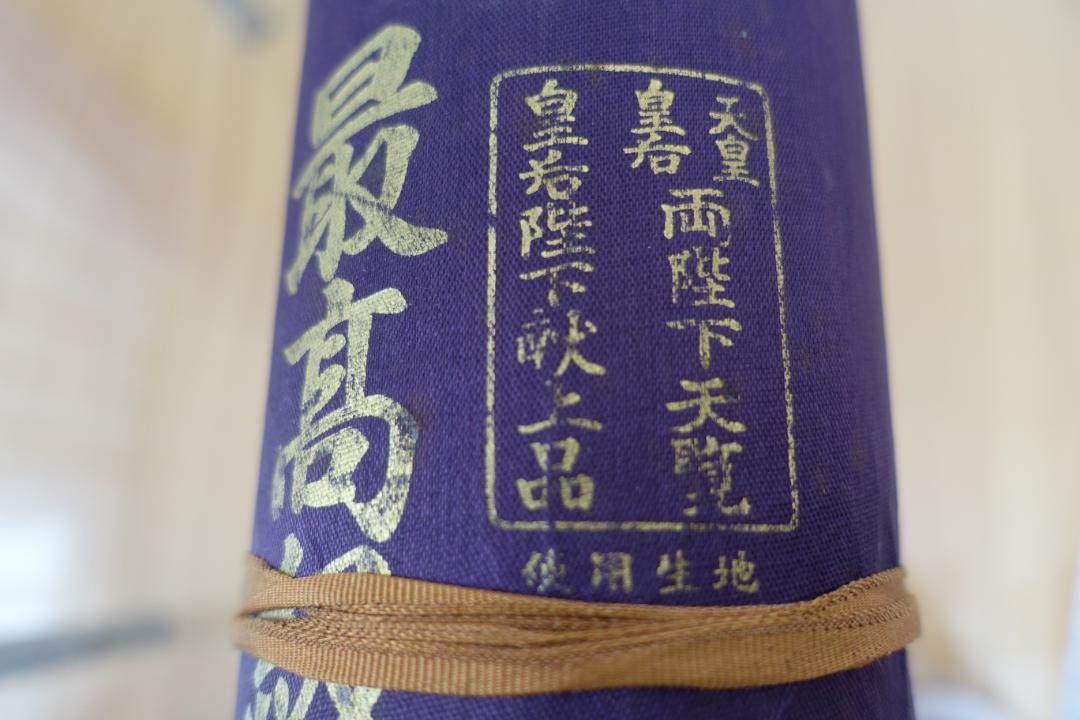 天皇
皇后
両陛下天覧
皇后陛下献上品
使用生地
最高級